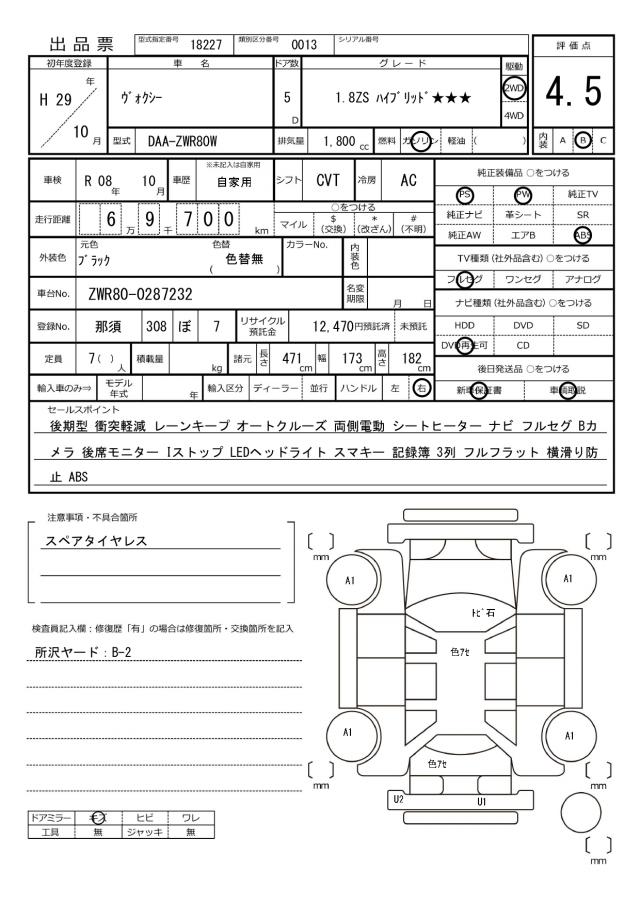 出品票
型式指定番号 18227 類別区分番号 0013 シリアル番号
評価点
4.5
初年度登録 車名 ドア数 グレード 駆動
H 29 年 10 月
ヴォクシー 5 D 1.8ZS ハイブリッド★★★
2WD
4WD
型式 DAA-ZWR80W 排気量 1,800 cc 燃料 ガソリン 軽油 ( )
内装 A B C
車検 R 08 年 10 月 車歴 ※未記入は自家用 自家用 シフト CVT 冷房 AC
走行距離 6 万 9 千 7 0 0 km
○をつける
マイル $ (交換) * (改ざん) # (不明)
外装色 元色 ブラック 色替 ( 色替無 ) カラーNo. 内装色
車台No. ZWR80-0287232 名変期限 月 日
登録No. 那須 308 ぼ 7 リサイクル預託金 12,470円預託済 未預託
定員 7( )人 積載量 kg 諸元 長さ 471 cm 幅 173 cm 高さ 182 cm
輸入車のみ⇒ モデル年式 年 輸入区分 ディーラー 並行 ハンドル 左 右
純正装備品 ○をつける
PS PW 純正TV
純正ナビ 革シート SR
純正AW エアB ABS
TV種類 (社外品含む) ○をつける
フルセグ ワンセグ アナログ
ナビ種類 (社外品含む) ○をつける
HDD DVD SD
DVD再生可 CD
後日発送品 ○をつける
新車保証書 車輌取説
セールスポイント
後期型 衝突軽減 レーンキープ オートクルーズ 両側電動 シートヒーター ナビ フルセグ Bカ
メラ 後席モニター Iストップ LEDヘッドライト スマキー 記録簿 3列 フルフラット 横滑り防
止 ABS
注意事項・不具合箇所
スペアタイヤレス
検査員記入欄：修復歴「有」の場合は修復箇所・交換箇所を記入
所沢ヤード：B-2
ドアミラー キズ ヒビ ワレ
工具 無 ジャッキ 無
mm
mm
A1
A1
トビ石
色アセ
A1
A1
色アセ
mm
mm
U2
U1
mm